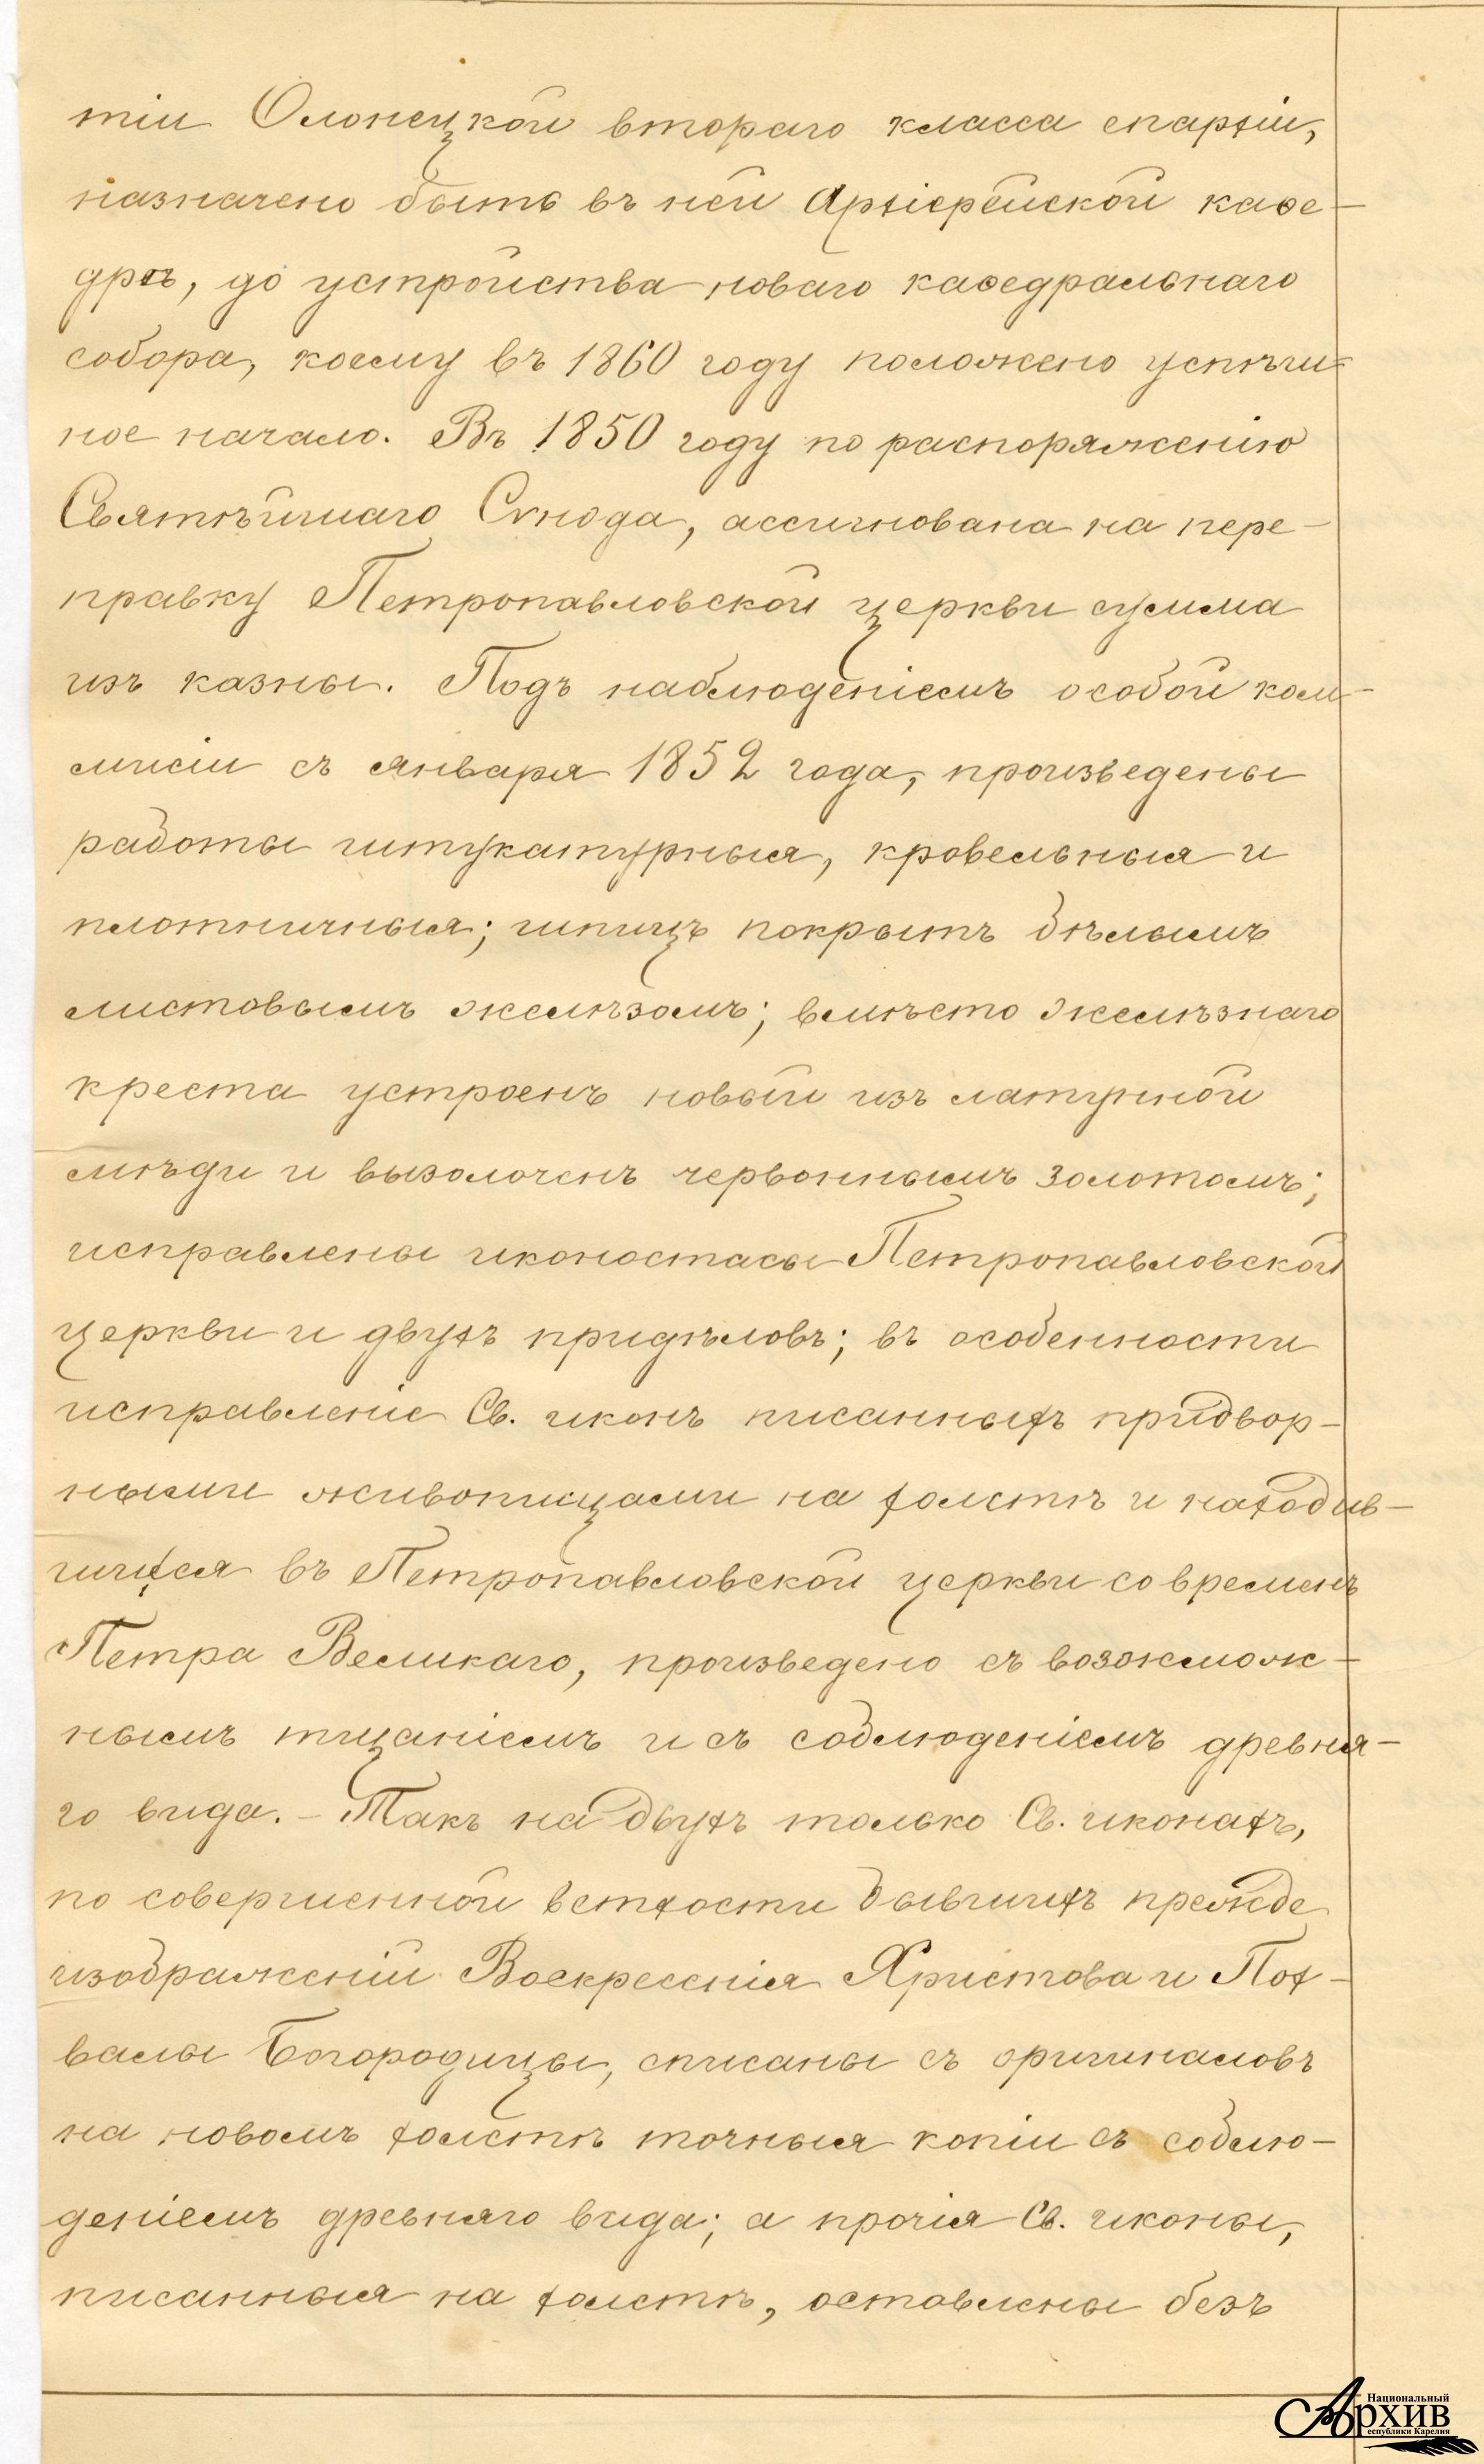 тіи Олонецкой втораго класса епархіи,
назначено быть въ ней Архіерейской каѳе-
дрѣ, до устройства новаго каѳедральнаго
собора, коему въ 1860 году положено успѣш-
ное начало. Въ 1850 году по распоряженію
Святѣйшаго Сѵнода, ассигнована на пере-
правку Петропавловской церкви сумма
изъ казны. Подъ наблюденіемъ особой ком-
мисіи съ января 1852 года, произведены
работы штукатурныя, кровельныя и
плотничныя; шпицъ покрытъ бѣлымъ
листовымъ желѣзомъ; вмѣсто желѣзнаго
креста устроенъ новый изъ латунной
мѣди и вызолоченъ червоннымъ золотомъ;
исправлены иконостасы Петропавловской
церкви и двухъ придѣловъ; въ особенности
исправленіе Св. иконъ писанныхъ придвор-
ными живописцами на холстѣ и находив-
шихся въ Петропавловской церкви со временъ
Петра Великаго, произведено съ возмож-
нымъ тщаніемъ и съ соблюденіемъ древня-
го вида. - Такъ на двухъ только Св. иконахъ,
по совершенной ветхости бывшихъ прежде
изображеній Воскресенія Христова и Пох-
валы Богородицы, списаны съ оригиналовъ
на новомъ холстѣ точныя копіи съ соблю-
деніемъ древняго вида; а прочія Св. иконы,
писанныя на холстѣ, оставлены безъ
Национальный
Архив
Республики Карелия